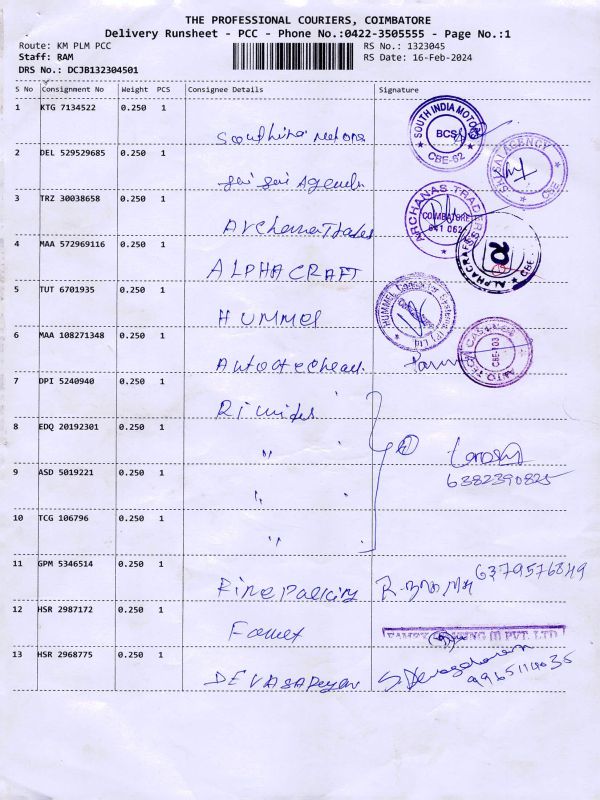 THE PROFESSIONAL COURIERS, COIMBATORE
Delivery Runsheet - PCC - Phone No.:0422-3505555 - Page No.:1
Route: KM PLM PCC
RS No.: 1323045
Staff: RAM
RS Date: 16-Feb-2024
DRS No.: DCJB132304501
S No Consignment No Weight PCS Consignee Details Signature
1 KTG 7134522 0.250 1
SOUTH INDIA MOTORS BCS CBE-02
2 DEL 529529685 0.250 1
Sri Sai Agency
SRI SAI AGENCY CBE
3 TRZ 30038658 0.250 1
Archana Trades
ARCHANAS TRADERS COIMBATORE 641 062
4 MAA 572969116 0.250 1
ALPHACRAFT
ALPHACRAFT CBE
5 TUT 6701935 0.250 1
HUMMEL
HUMMEL
6 MAA 108271348 0.250 1
AUTO TECH
7 DPI 5240940 0.250 1
8 EDQ 20192301 0.250 1
"
4
6382390825
9 ASD 5019221 0.250 1
"
10 TCG 106796 0.250 1
"
11 GPM 5346514 0.250 1
Fine Packing
6379576849
12 HSR 2987172 0.250 1
Famex
(I) PVT. LTD
13 HSR 2968775 0.250 1
S. Devasagayam
9965114035